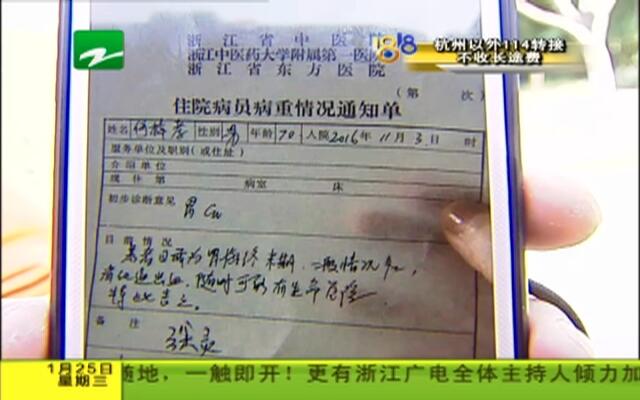 浙江省中医院
1818
杭州以外114转接
不收长途费
浙江中医药大学附属第一医院
浙江省东方医院
(第 次)
住院病员病重情况通知单
姓名 性别 男 年龄 70 入院 2016年 11月 3日 时
服务单位及职别(或住址)
介绍单位
现住第 病室 床
初步诊断意见 胃Ca
目前情况
患者目前为胃癌 末期,一般情况
消化道出血,随时可能有生命危险
特此告之
备注
1月25日
星期三
随地,一触即开!更有浙江广电全体主持人倾力加